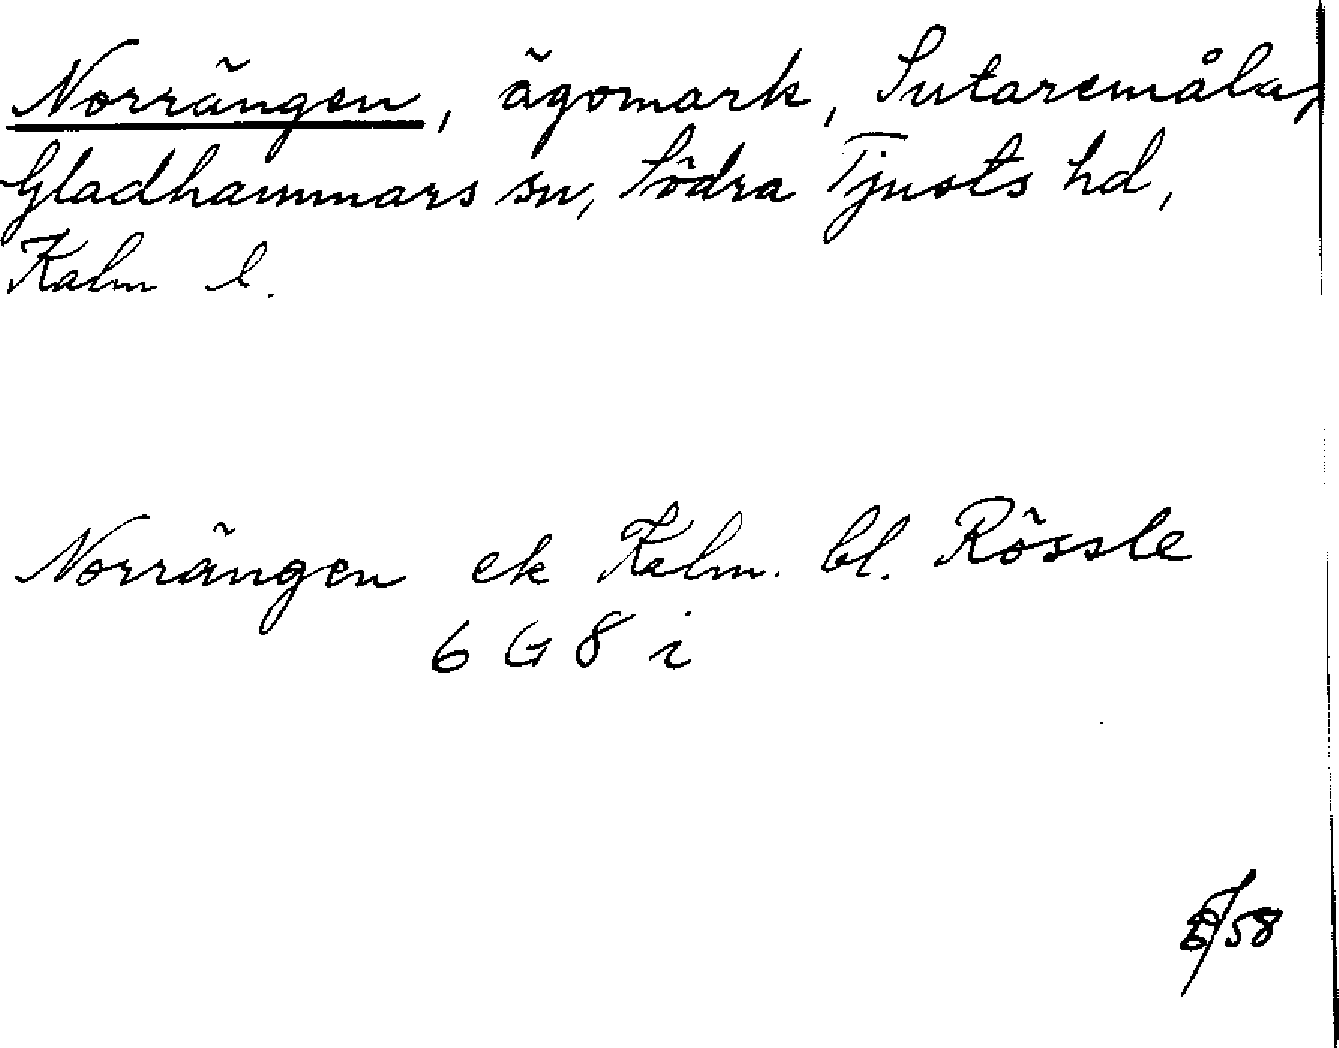 Norrängen, ägomark, Sutaremåla,
Gladhammars sn, Södra Tjusts hd,
Kalm l.
Norrängen ek Kalm. bl. Rössle
6 G 8 i